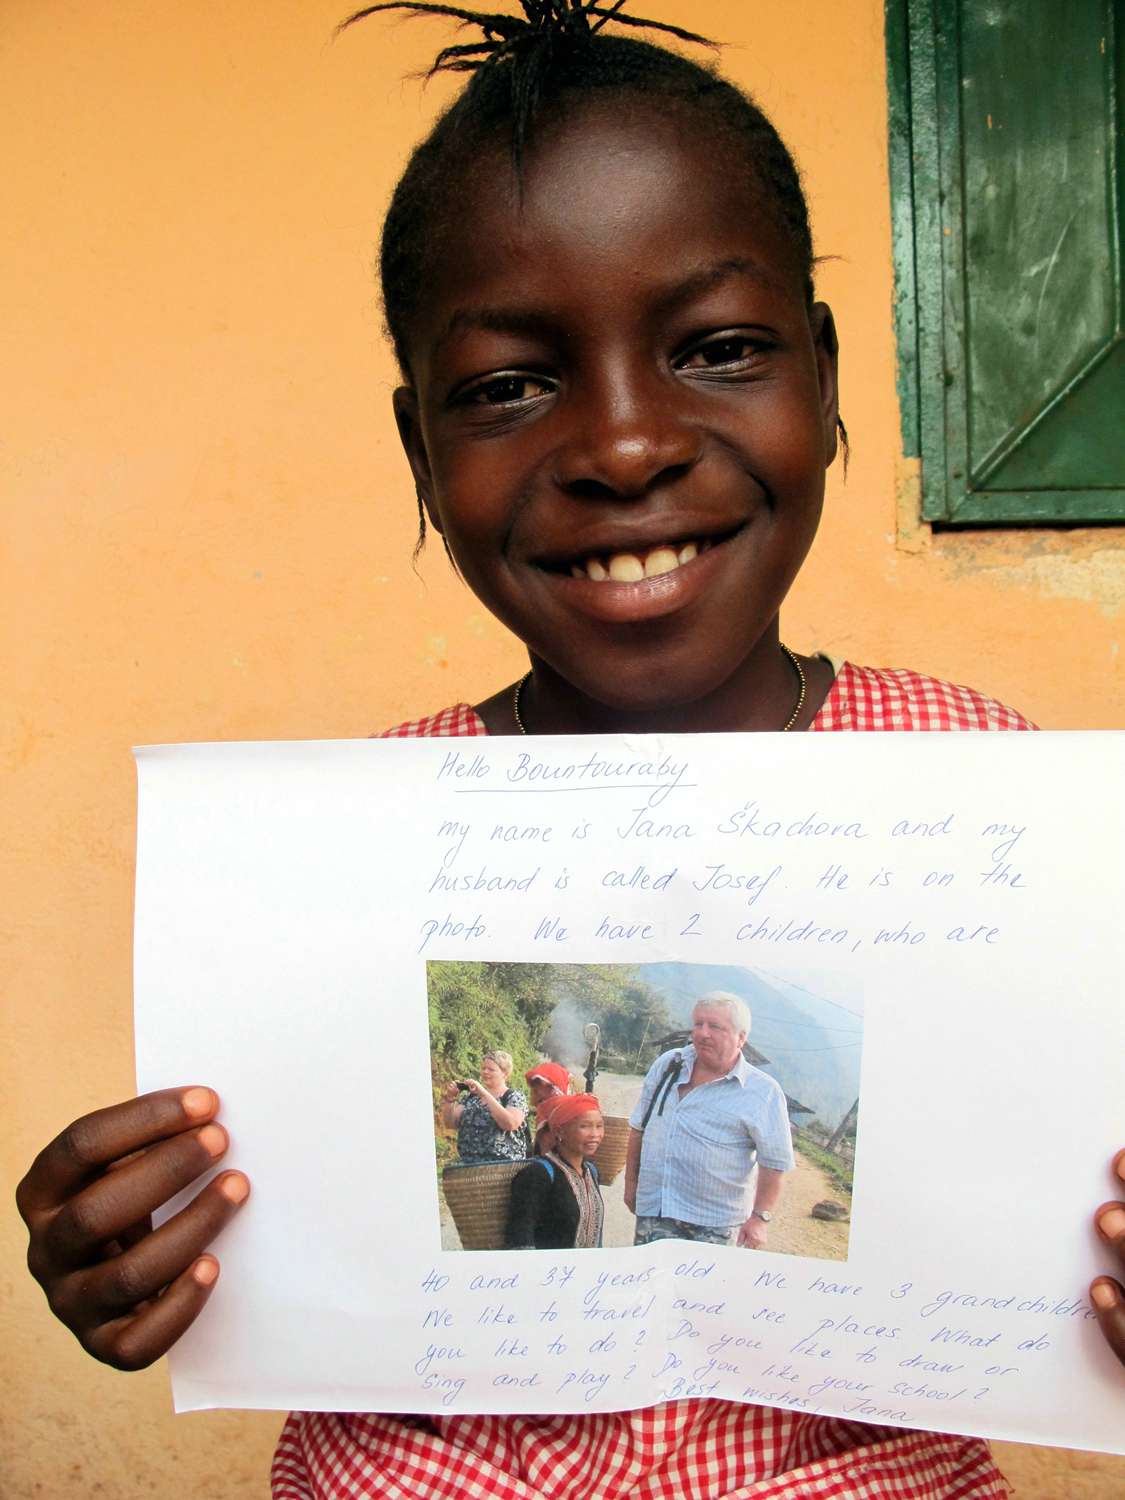 Hello Bountouraby
my name is Jana Škachova and my
husband is called Josef. He is on the
photo. We have 2 children, who are
40 and 37 years old. We have 3 grandchildren
We like to travel and see places. What do
you like to do? Do you like to draw or
sing and play? Do you like your school?
Best wishes, Jana